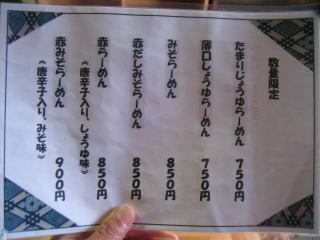 数量限定
たまりじょうゆらーめん 750円
薄口しょうゆらーめん 750円
みそらーめん 850円
赤だしみそらーめん 850円
赤らーめん 850円
《唐辛子入り、しょうゆ味》
赤みそらーめん 900円
《唐辛子入り、みそ味》